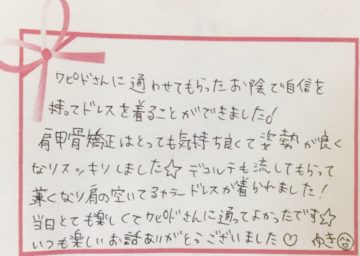 ワピドさんに通わせてもらったお陰で自信を
持ってドレスを着ることができました!
肩甲骨矯正はとっても気持ち良くて姿勢が良く
なりスッキリしました☆デコルテも流してもらって
薄くなり肩の空いてるカラードレスが着れました!
当日とても楽しくてワピドさんに通ってよかったです☆
いつも楽しいお話ありがとうございました♡ ゆき